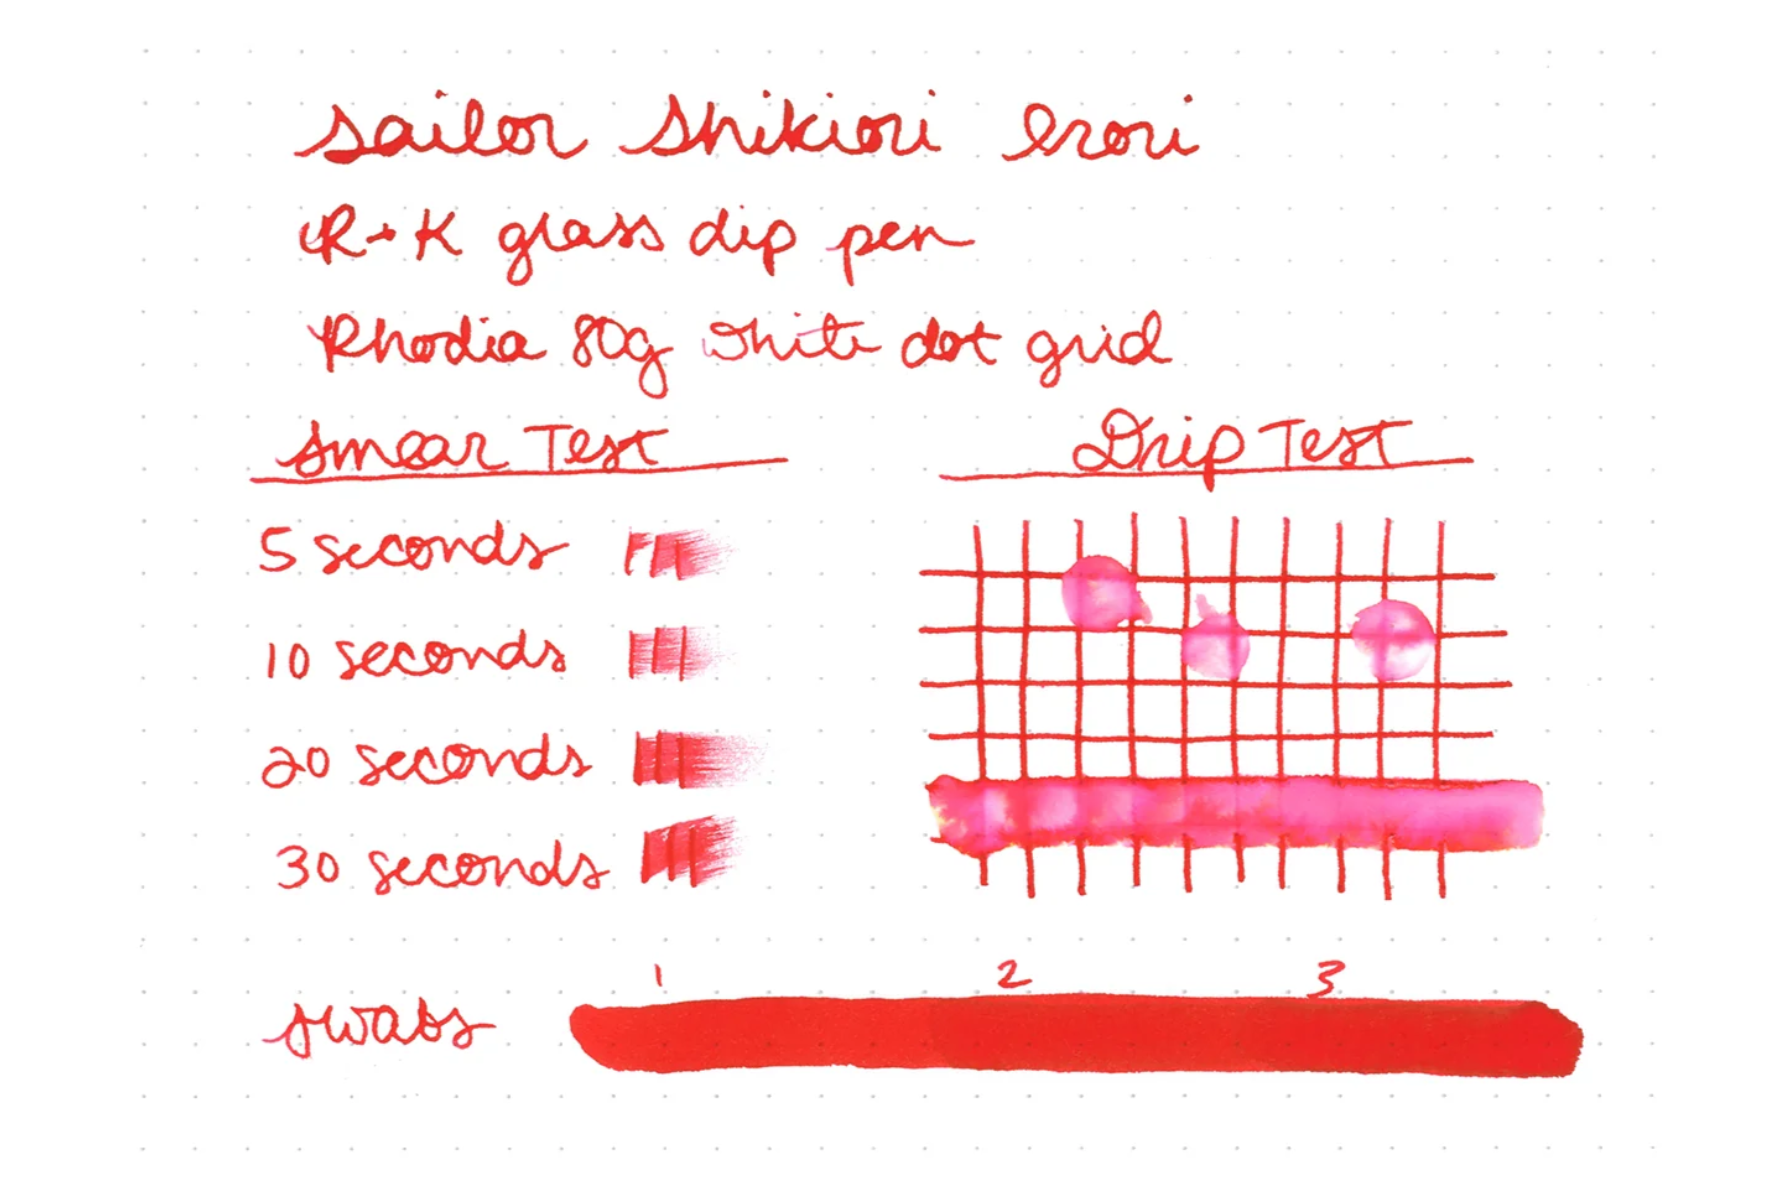 sailor Shikiori Irori
R+K glass dip pen
Rhodia 80g white dot grid
Smear Test
Drip Test
5 seconds
10 seconds
20 seconds
30 seconds
1 2 3
swabs